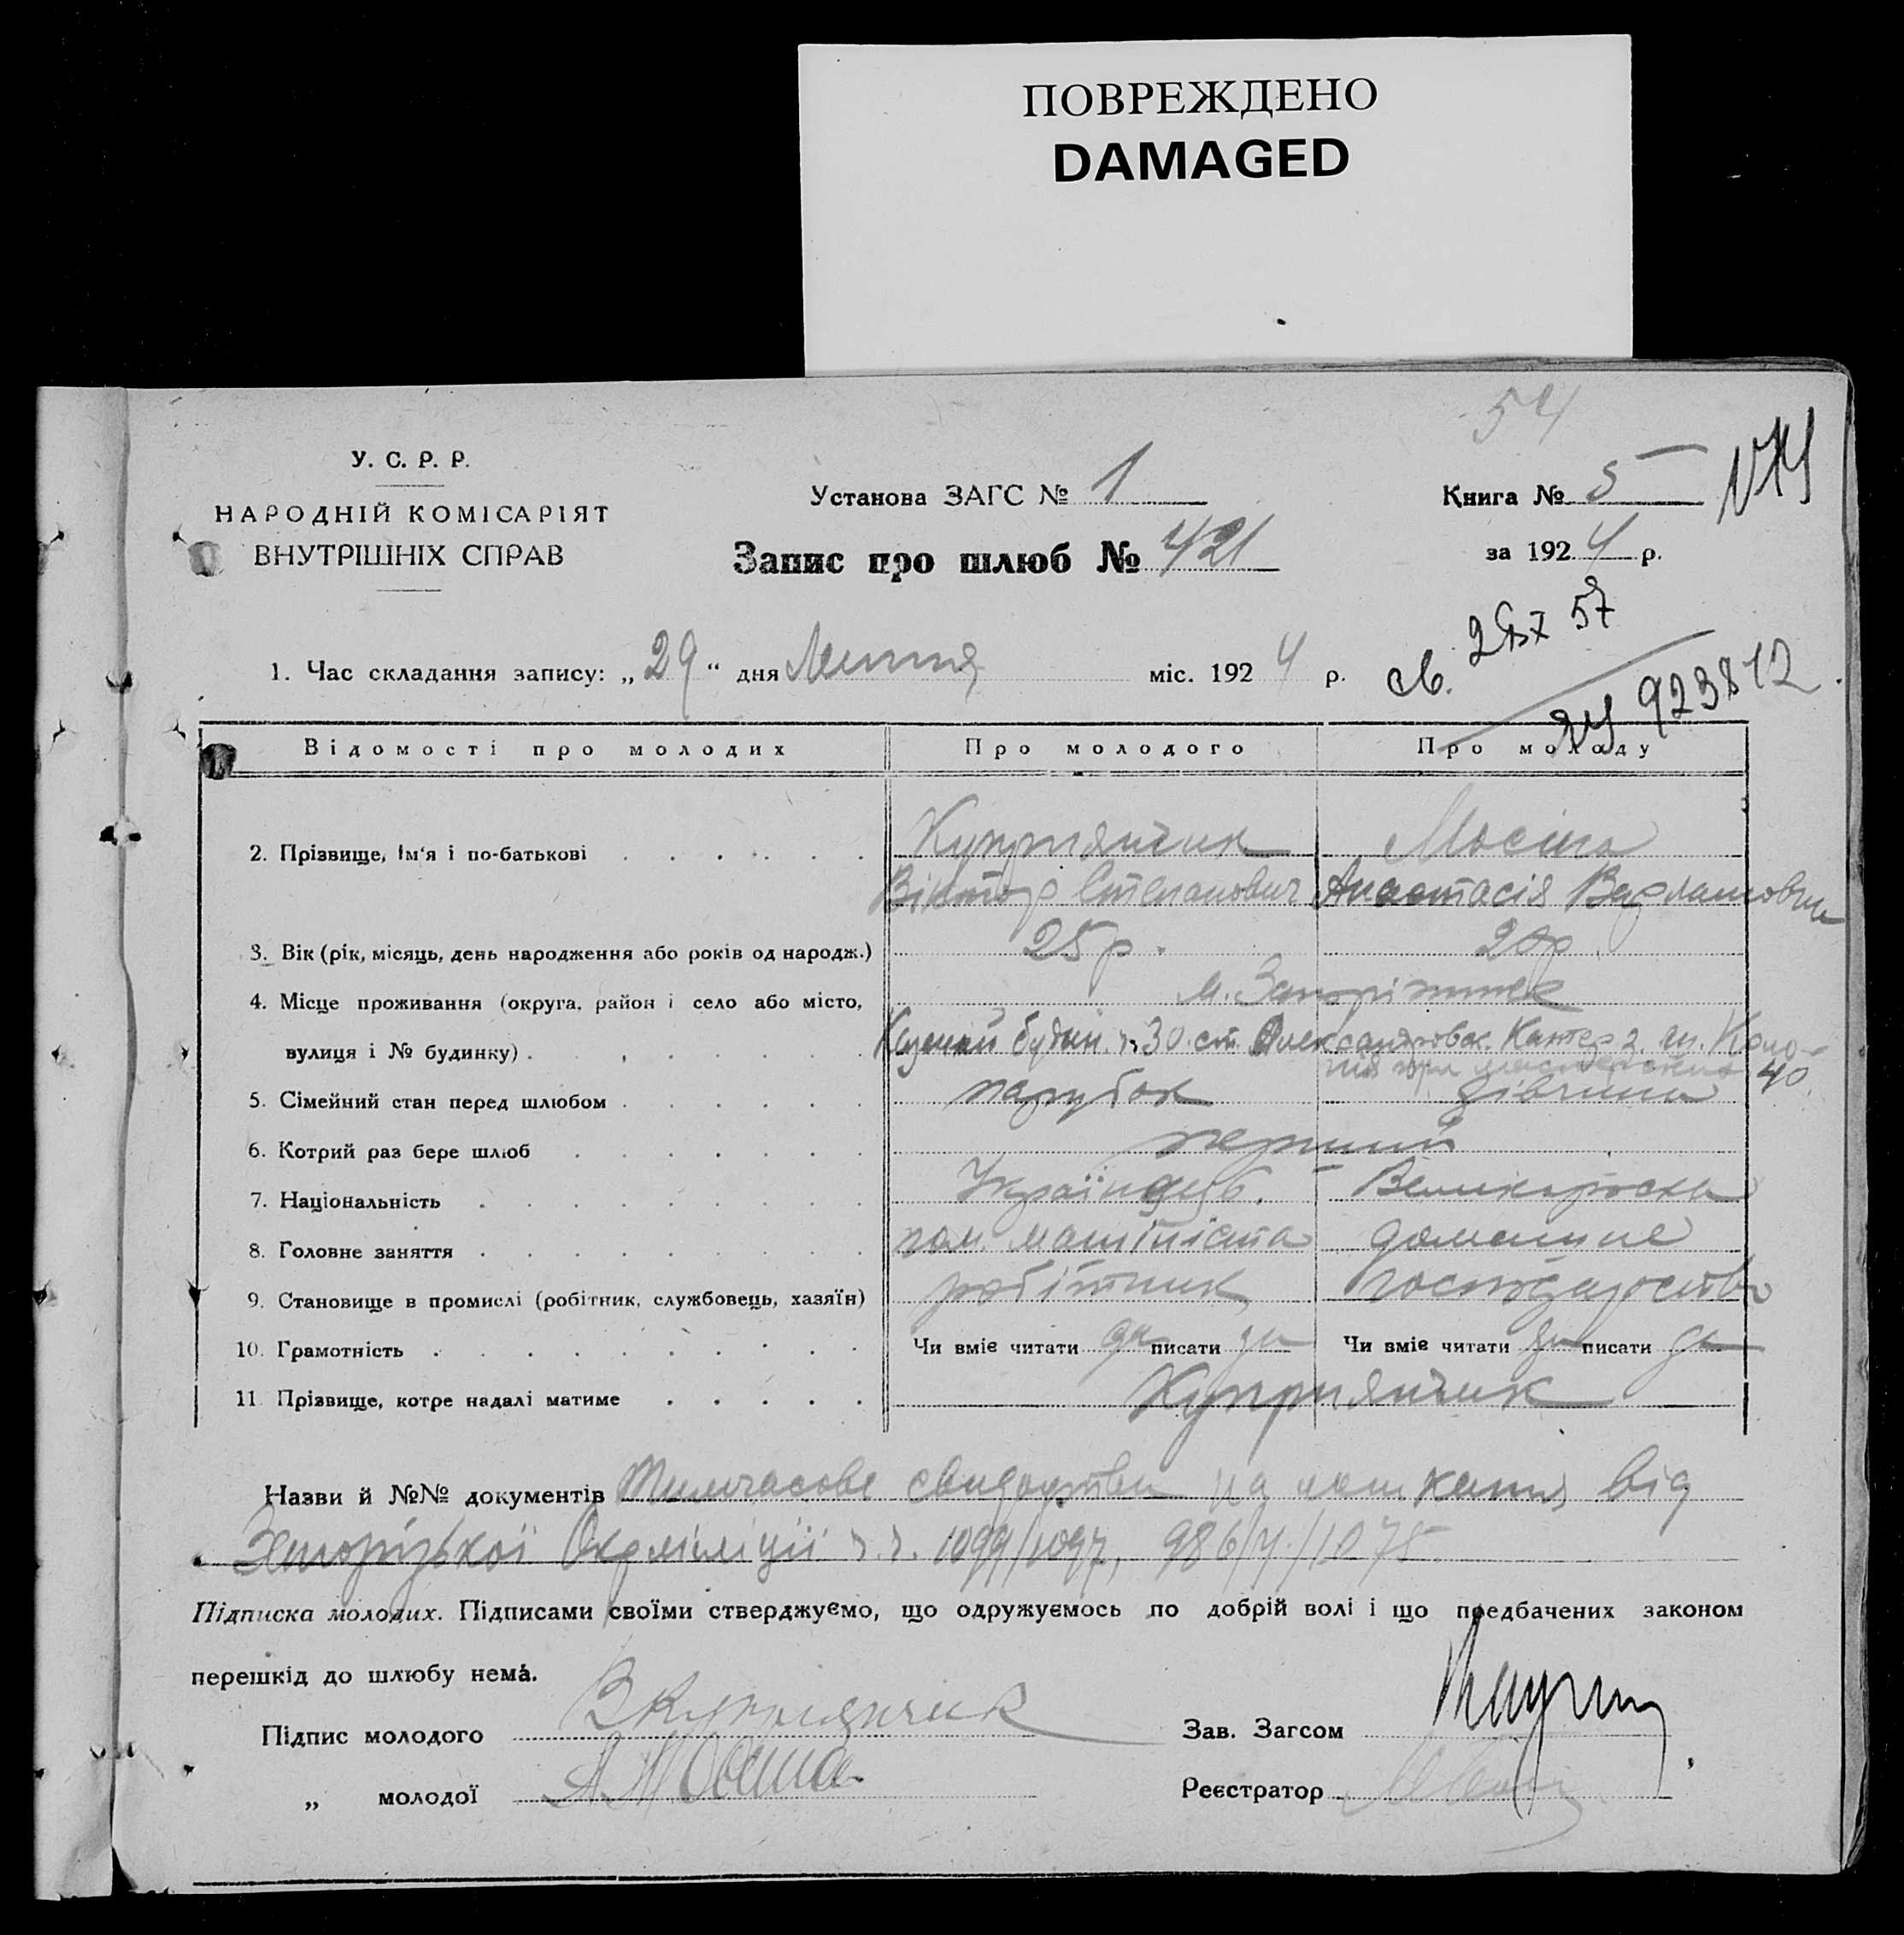 ПОВРЕЖДЕНО
DAMAGED
54
У. С. Р. Р.
НАРОДНІЙ КОМІСАРІЯТ
ВНУТРІШНІХ СПРАВ
Установа ЗАГС № 1
Запис про шлюб № 421
Книга № 5
за 1924 р.
1. Час складання запису: „29“ дня Липня міс. 1924 р.
св. 57
923812
Відомості про молодих Про молодого Про молоду
2. Прізвище, ім'я і по-батькові Куприянчик Мосіна
Віктор Степанович Анастасія Варламовна
3. Вік (рік, місяць, день народження або років од народж.) 25 р. 20 р.
4. Місце проживання (округа, район і село або місто, м. Запоріжжя
вулиця і № будинку) будин. ч. 30 ст. Олександровск.
40
5. Сімейний стан перед шлюбом парубок дівчина
6. Котрий раз бере шлюб перший
7. Національність Українець. Великороска
8. Головне заняття пом. машініста домашне
9. Становище в промислі (робітник, службовець, хазяїн) робітник господарство
10. Грамотність Чи вміє читати да писати да Чи вміє читати да писати да
11 Прізвище, котре надалі матиме Куприянчик
Назви й №№ документів Тимчасове свидоцтва на мешкання від
Запорізької Окрміліції ч.ч. 1099/1097, 986/ /1075
Підписка молодих. Підписами своїми стверджуємо, що одружуємось по добрій волі і що предбачених законом
перешкід до шлюбу нема.
Підпис молодого В Куприянчик
Зав. Загсом
„ молодої А Мосина
Реєстратор